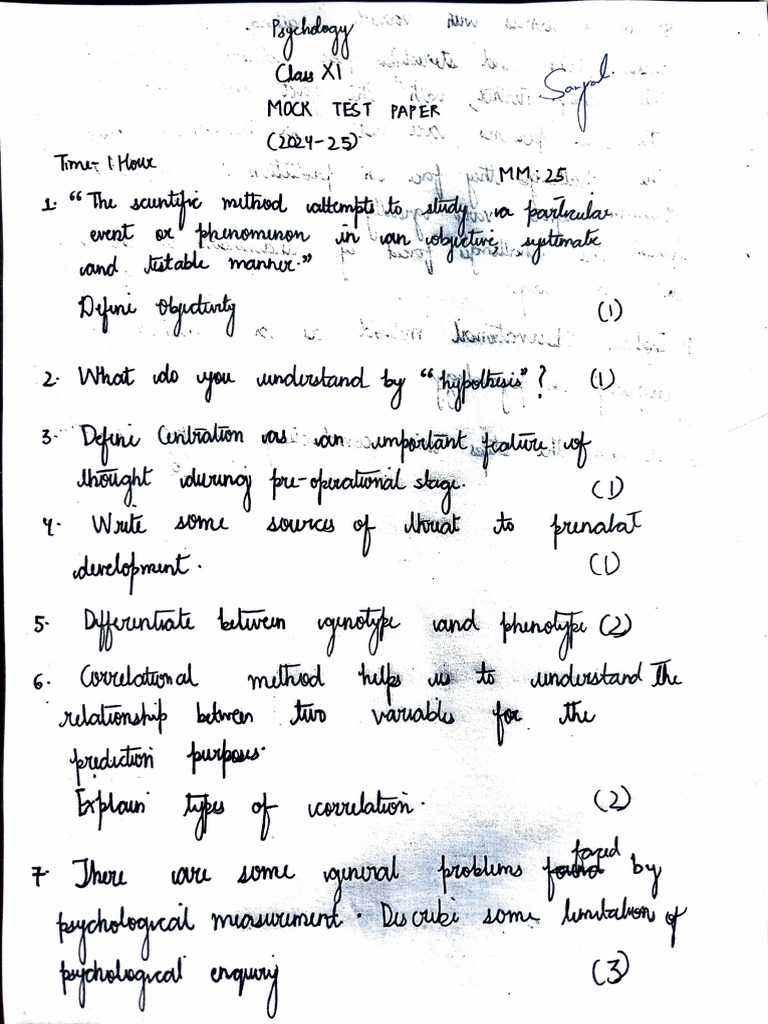 Psychology
Class XI
MOCK TEST PAPER
(2024-25)
Time:- 1 Hour
MM:25
1. "The scientific method attempts to study a particular
event or phenomenon in an objective, systematic
and testable manner."
Define Objectivity (1)
2. What do you understand by "hypothesis"? (1)
3. Define Centration as an important feature of
thought during pre-operational stage. (1)
4. Write some sources of threat to prenatal
development. (1)
5. Differentiate between genotype and phenotype (2)
6. Correlational method helps us to understand the
relationship between two variables for the
prediction purposes.
Explain types of correlation. (2)
7. There are some general problems faced by
psychological measurement. Describe some limitation of
psychological enquiry (3)